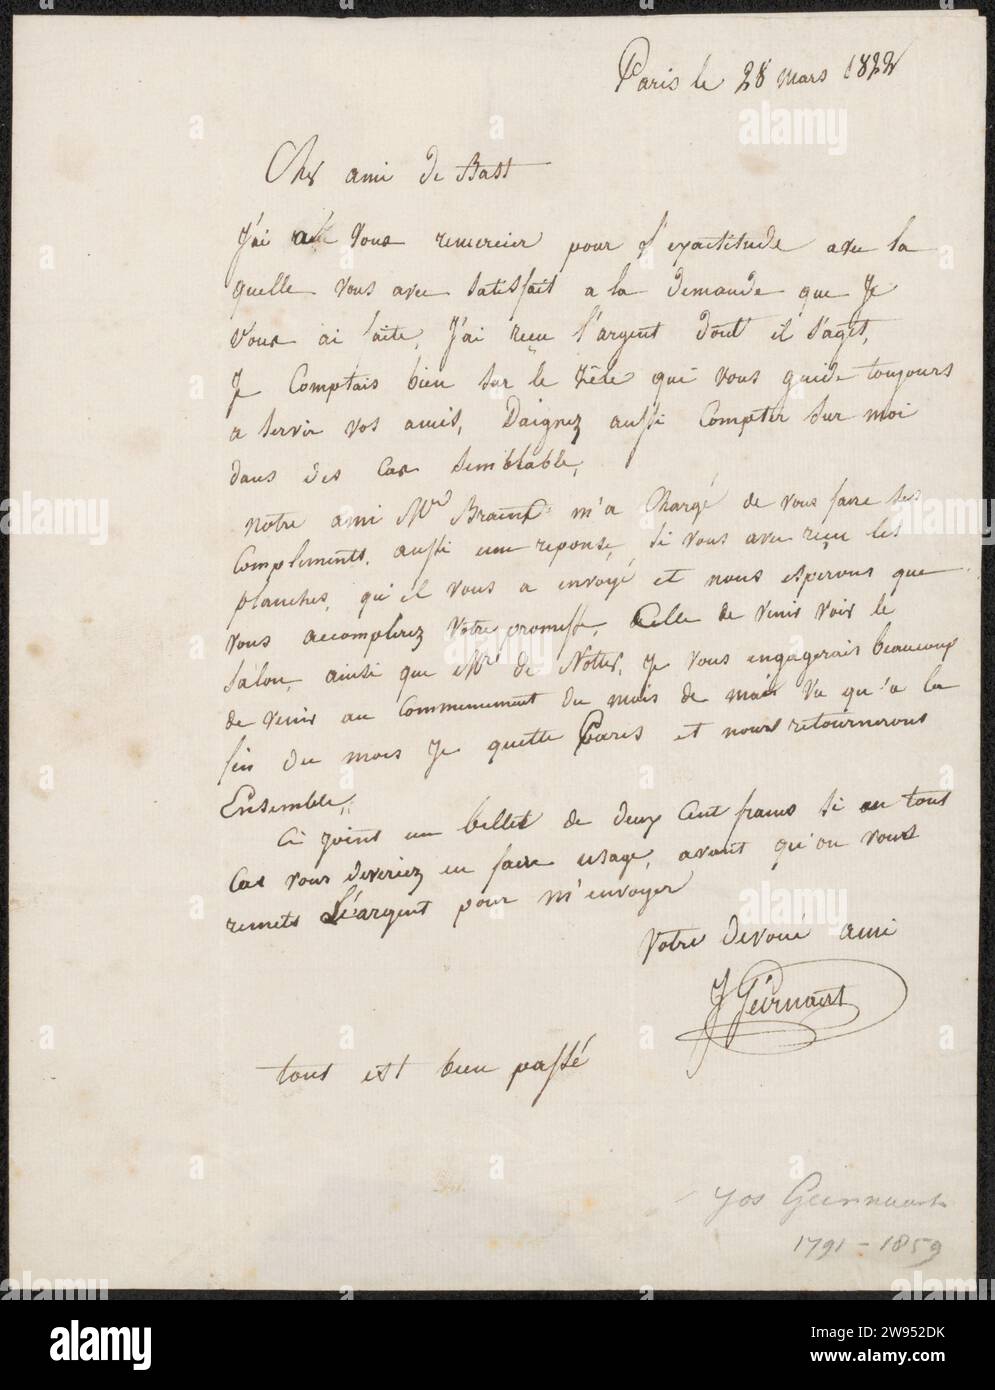 Paris le 28 mars 1822
Cher ami de Bast
J'ai a vous remercier pour l'exactitude avec la
quelle vous avec satisfait a la demande que Je
vous ai faite, J'ai reçu l'argent dont il s'agit,
Je Comptais bien sur le zèle qui vous guide toujours
a servir vos amis, Daignez aussi Compter sur moi
dans des Cas semblable,
notre ami Mr m'a Chargé de vous faire ses
Compliments, aussi une reponse, si vous avec reçu les
planches, qu'il vous a envoyé et nous esperons que
vous accomplirez votre promesse, Celle de venir voir le
salon, ainsi que Mr de Noter, Je vous engagerais beaucoup
de venir au Commencement du mois de mai vu qu'a la
fin du mois Je quitte Paris et nous retournerons
Ensemble,
Ci joint un billet de deux Cent francs si en tout
Cas vous deveriez en faire usage, avant qu'on vous
remets L'argent pour m'envoyer
Votre devoué ami
J Geirnaert
tout est bien passé
Jos Geirnaert
1791 - 1859
alamy
Image ID: 2W952DK
www.alamy.com